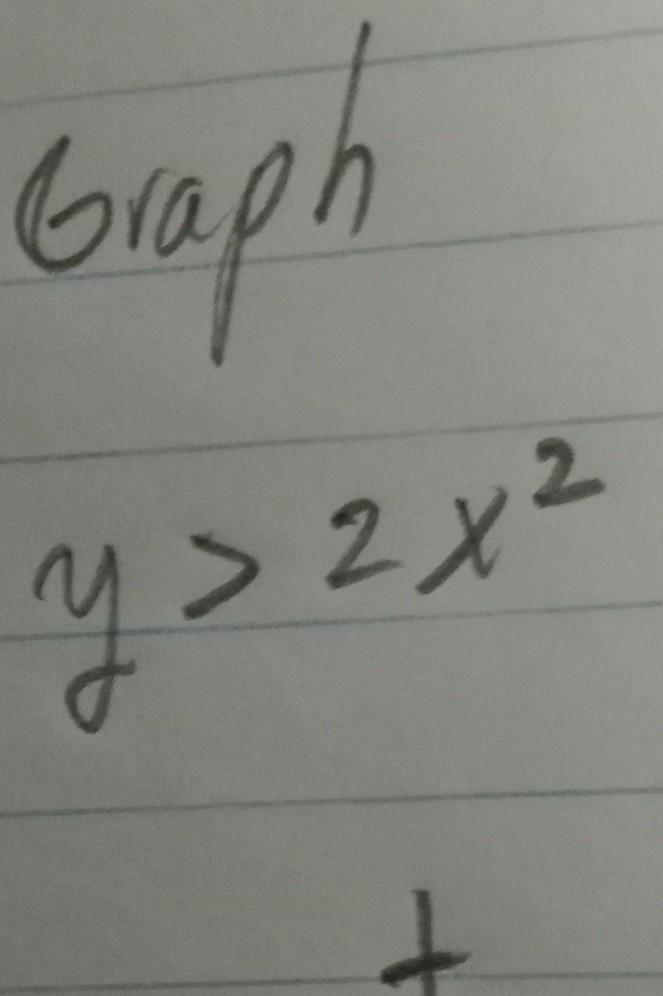 Graph
y > 2x²
+